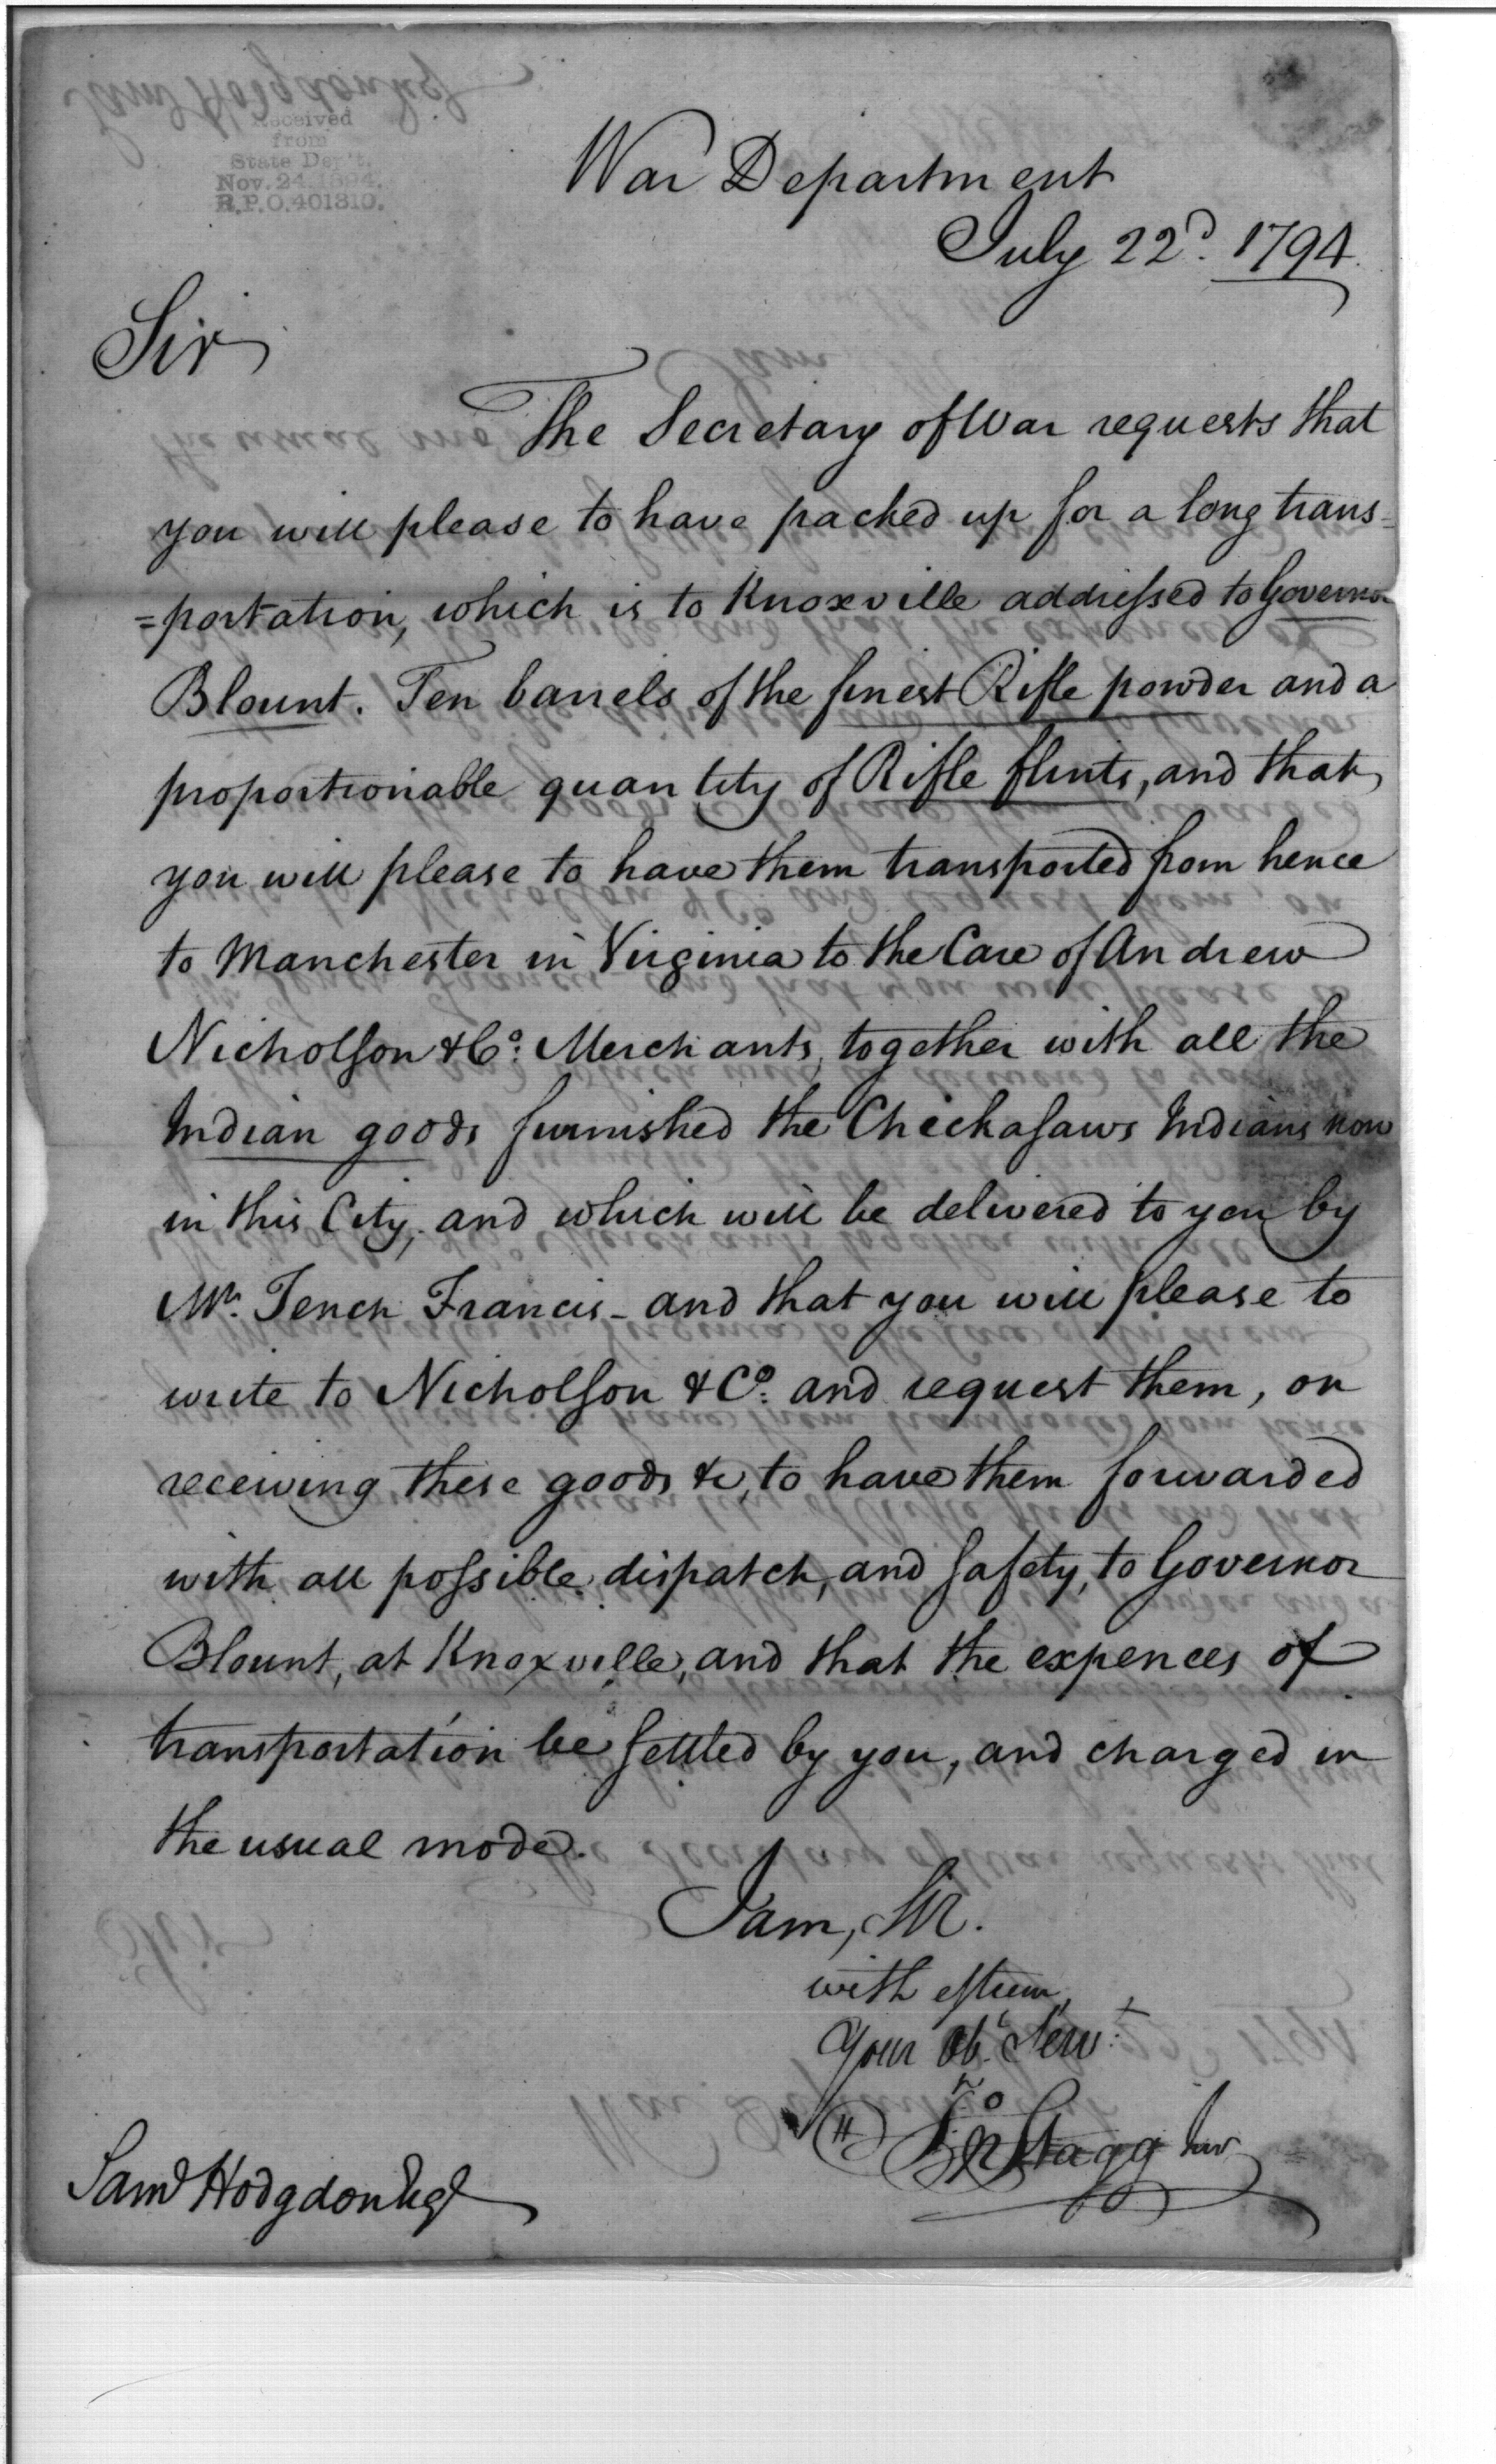 Received
from
State Dep't.
Nov. 24 1894.
R.P.O. 401310.
War Department
July 22d. 1794.
Sir
The Secretary of War requests that
you will please to have packed up for a long trans=
=portation, which is to Knoxville addressed to Governor
Blount. Ten barrels of the finest Rifle powder and a
proportionable quantity of Rifle flints, and that
you will please to have them transported from hence
to Manchester in Virginia to the Care of Andrew
Nicholson & Co: Merchants, together with all the
Indian goods furnished the Chickasaws Indians now
in this City, and which will be delivered to you by
Mr. Tench Francis - and that you will please to
write to Nicholson & Co: and request them, on
receiving these goods &c, to have them forwarded
with all possible dispatch, and safety, to Governor
Blount, at Knoxville, and that the expences of
transportation be settled by you, and charged in
the usual mode.
I am, Sir.
with esteem,
Your Obt. Servt:
Jno Stagg Junr
Saml Hodgdon Esqr